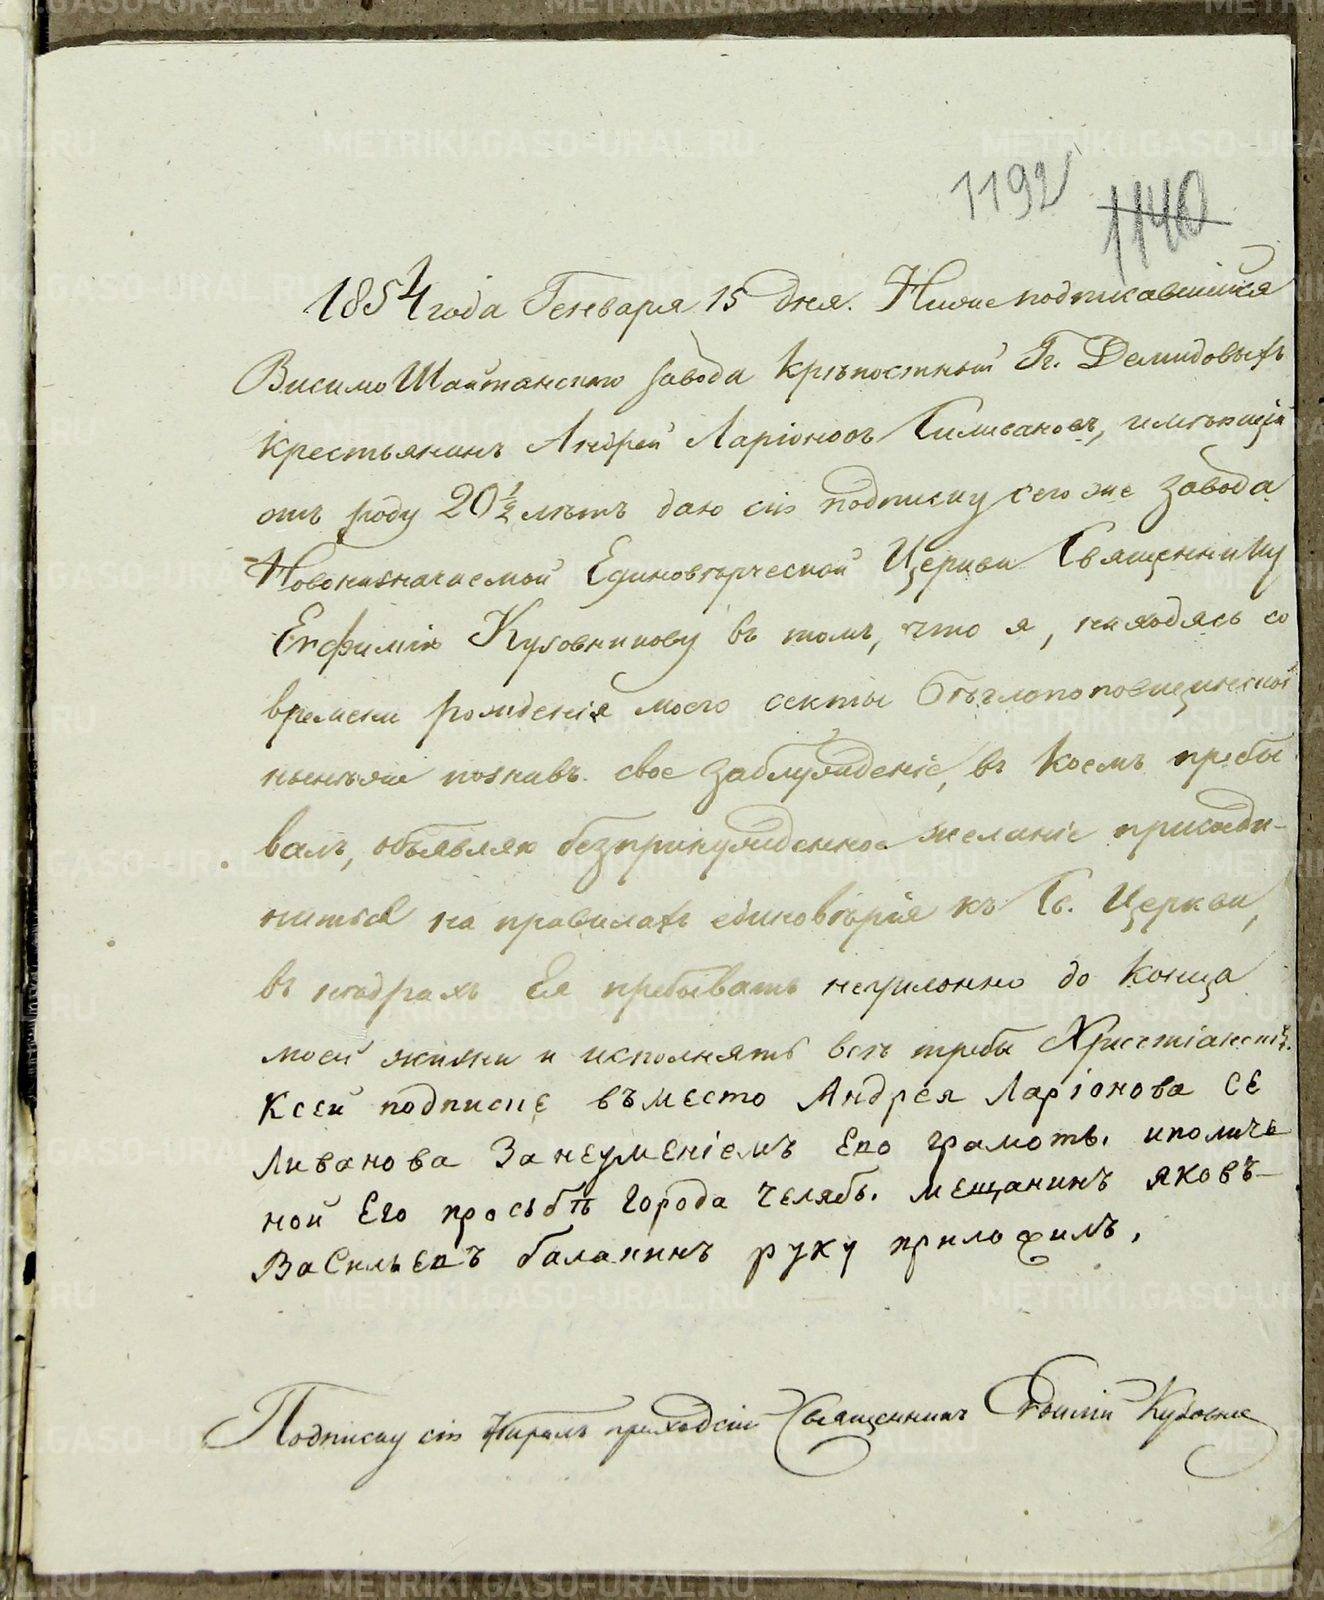 1192 1140
1854 года Генваря 15 дня. Нижеподписавшійся
Висимо Шайтанскаго завода крѣпостный Гг. Демидовыхъ
крестьянинъ Андрей Ларіоновъ Силивановъ, имѣющій
отъ роду 20 1/2 лѣтъ даю сію подписку сего же завода
Новоназначаемой Единовѣрческой Церкви Священнику
Евфимію Кузовникову въ томъ, что я, находясь со
времени рожденія моего секты бѣглопоповщинской
нынѣже познавъ свое заблужденіе, въ коемъ пребы
валъ, объявляю безпринужденное желаніе присоеди-
ниться на правилахъ единовѣрія къ Св. Церкви,
въ нѣдрахъ Ея пребывать неуклонно до конца
моей жизни и исполнять всѣ требы Христіанскія.
Ксей подписке въместо Андрея Ларіонова Се
ливанова Занеуменіемъ Его грамоть. иполиче
ной Его просьбѣ города Челябь. мещанинъ яковъ-
Васильевъ баланинъ руку приложилъ.
Подписку сію отбиралъ приходскій Священникъ Евфимій Кузовник
METRIKI.GASO-URAL.RU